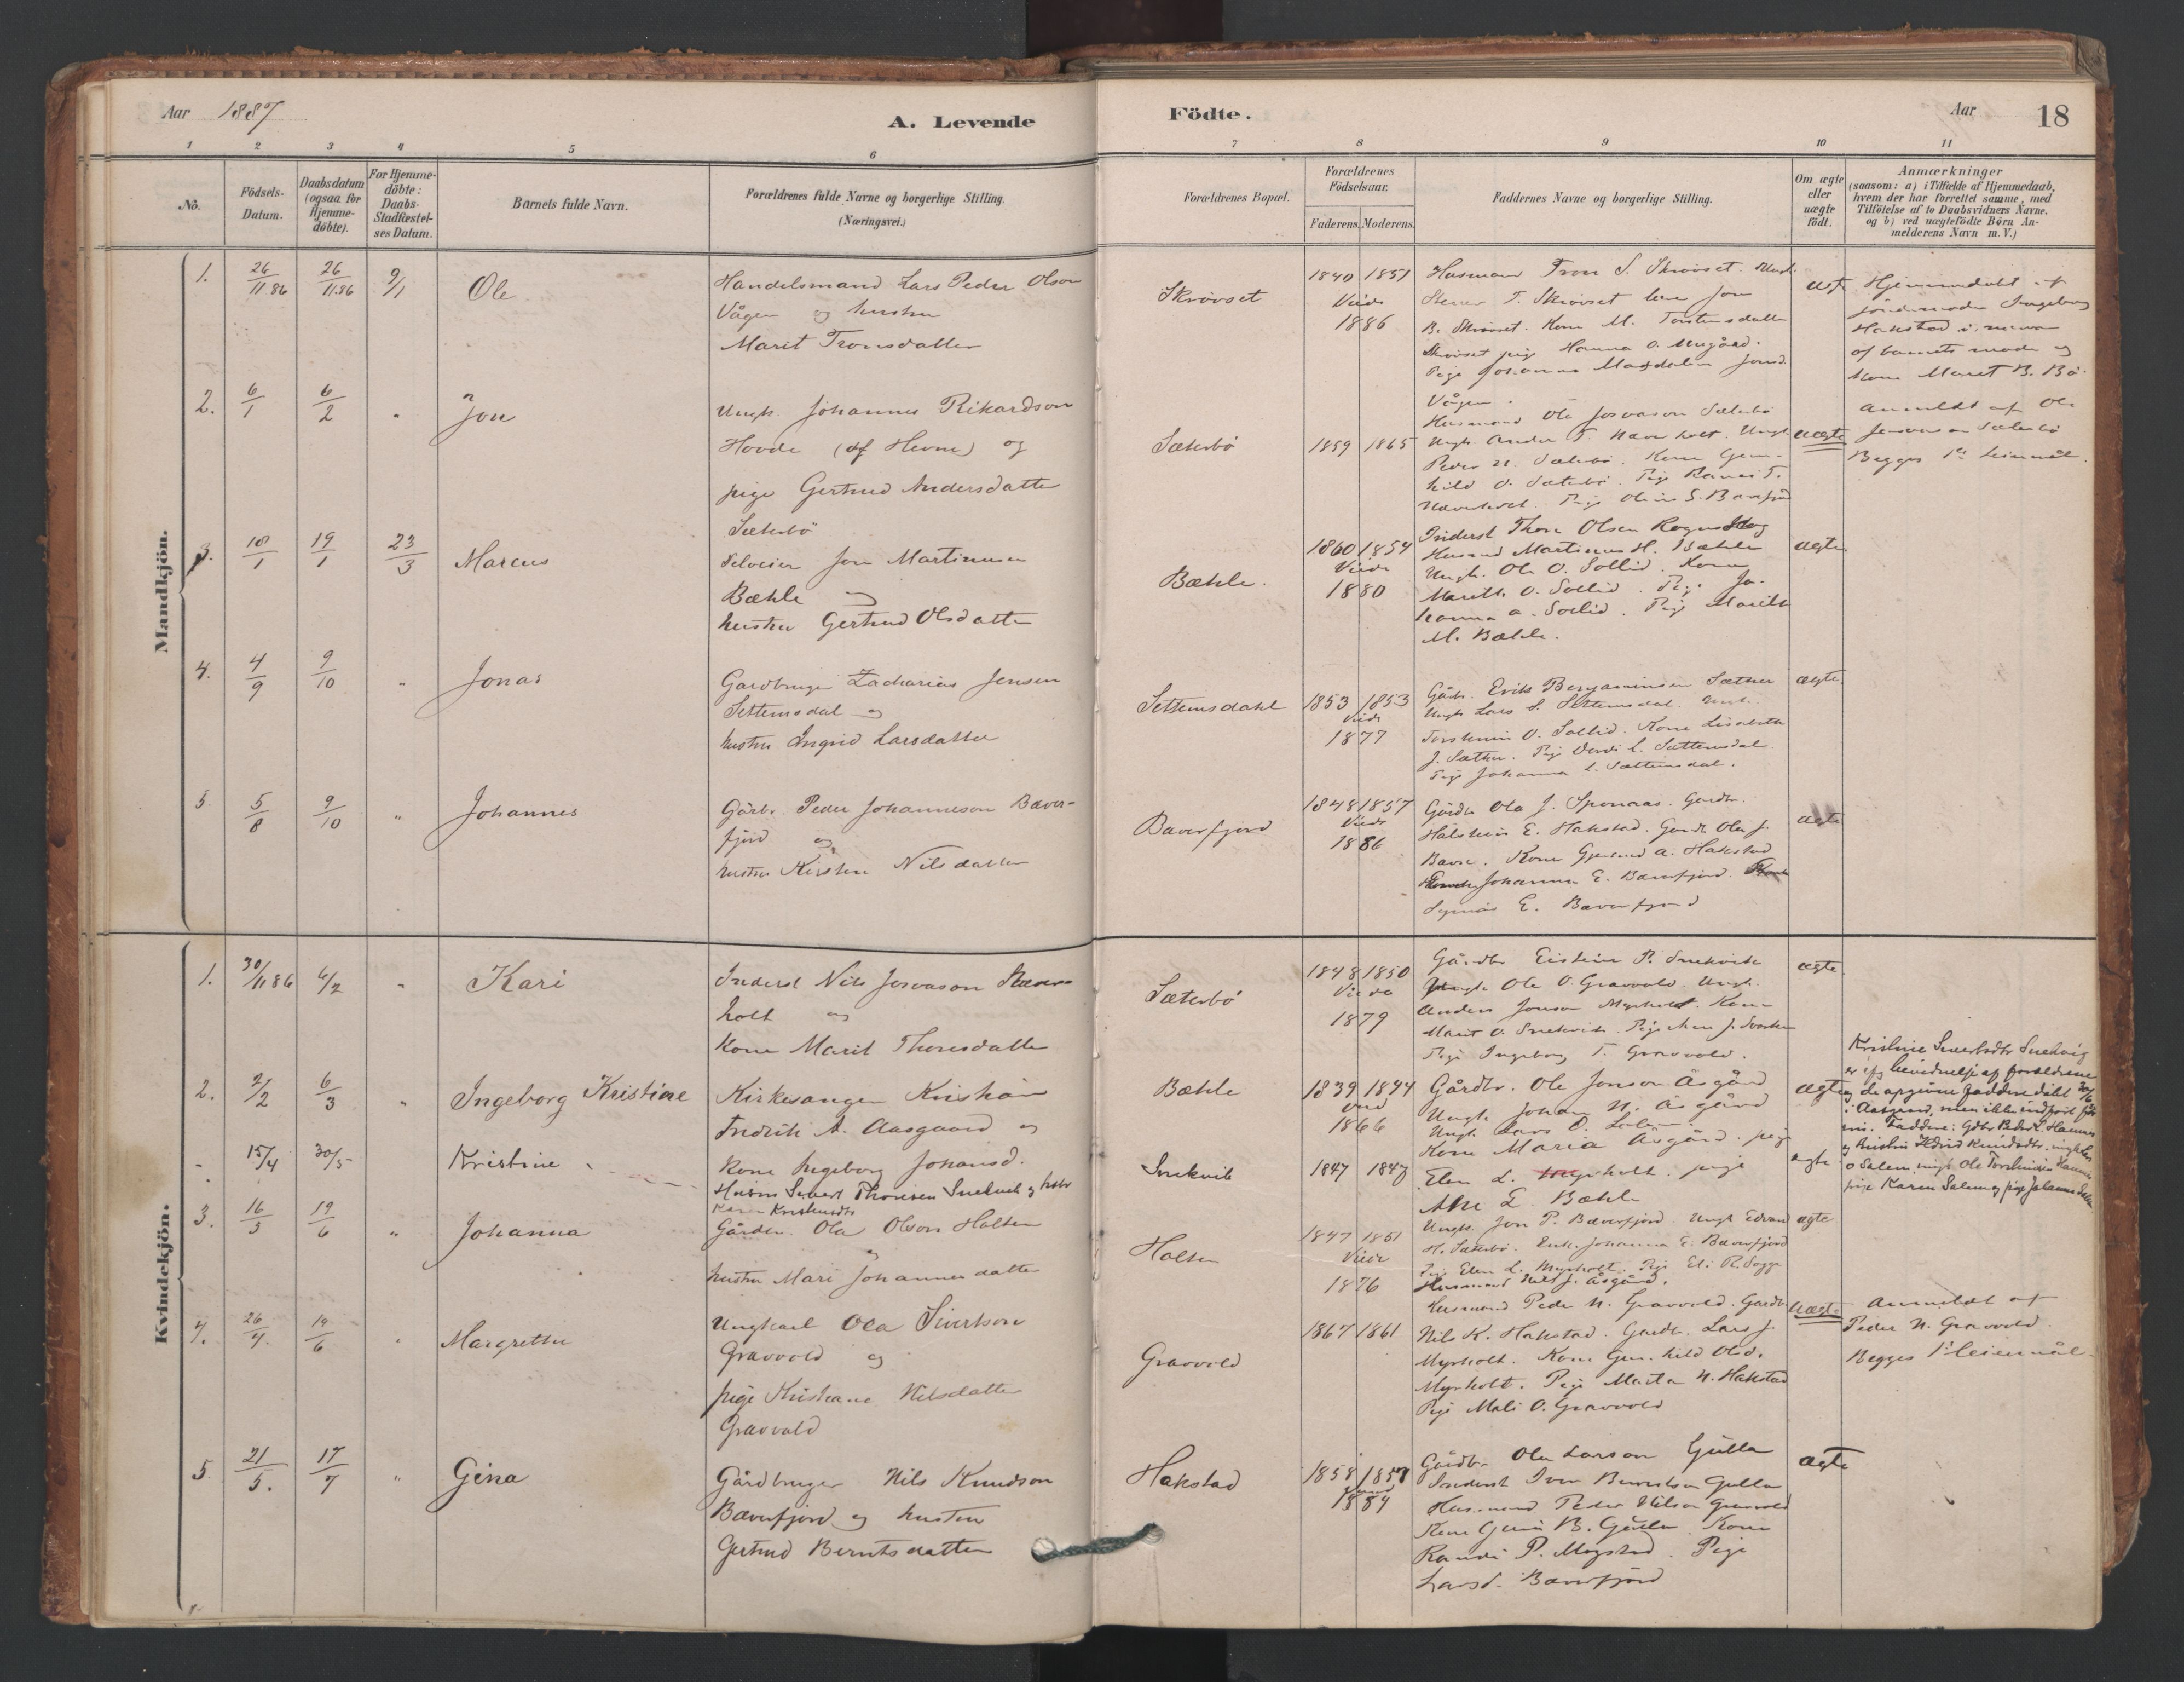 Aar 1887
A. Levende
Födte.
Aar
18
1 2 3 4 5 6 7 8 9 10 11
No.
Födsels-
Datum.
Daabsdatum
(ogsaa for
Hjemme-
döbte).
For Hjemme-
döbte:
Daabs-
Stadfæstel-
ses Datum.
Barnets fulde Navn.
Forældrenes fulde Navne og borgerlige Stilling.
(Næringsvei.)
Forældrenes Bopæl.
Forældrenes
Födselsaar.
Faderens. Moderens.
Faddernes Navne og borgerlige Stilling.
Om ægte
eller
uægte
födt.
Anmærkninger
(saasom: a) i Tilfælde af Hjemmedaab,
hvem der har forrettet samme, med
Tilföielse af to Daabsvidners Navne,
og b) ved uægtefödte Börn An-
melderens Navn m.V.)
Mandkjön.
1. 26/11 86 26/11.86 9/1 Ole
Handelsmand Lars Peder Olson
Vågen og hustru
Marit Tronsdatter
Skrövset
1840 1851
Viede
1886
Husmand Tron S. Skrövset. Ungk.
Stener T. Skrövset
B. Skrövset. Kone M. Torstensdatter
Skrövset pig Hanna O. Megård.
Pige Johanna Magdalen Jonsd.
Vågen.
Hjemmedöbt af
jordemoder Ingeborg
Hakstad i nærvær
af barnets moder og
Kone Maret B. Bö
2. 6/1 6/2 " Jon
Ungk. Johannes Rikardson
Hovde (af Hevne) og
pige Gertrud Andersdatter
Sæterbö
Sæterbö
1859 1865
Husmand Ole Josvason Sæterbö
Ungk. Anders T. Næverholt. Ungk.
Peder N. Sæterbö. Kone Gun-
hild O. Sæterbö. Pige Ranei T.
Næverholt. Pige Oline S. Bæverfjord
uægte
Anmeldt af Ole
Josvason Sæterbö
Begges 1ste Leiermål.
3. 18/1 19/1 23/3 Marcus
Selveier Jon Martinusen
Bæhle og
hustru Gertrud Olsdatter
Bæhle.
1860 1854
Viede
1880
Inderst Thore Olsen
Husmd Martinus H. Bæhle
Ungk. Ole O. Sollid. Kone
Marith O. Sollid. Pige Jo-
hanna A. Sollid. Pige Marith
M. Bæhle.
ægte
4. 4/9 9/10 " Jonas
Gardbruger Zacharias Jensen
Settemsdal og
hustru Ingrid Larsdatter
Settemsdahl
1853 1853
Viede
1877
Gårdb. Erik Benjaminsen Sæther
Ungk Lars S. Settemsdal. Ungk.
Torstein O. Sollid. Kone Lisabeth
J. Sæther. Pige L. Sættemsdal.
Pige Johanna L. Sættemsdal.
ægte
5. 5/8 9/10 " Johannes
Gårbr. Peder Johanneson Bæver-
fjord og
hustru Kirsten Nilsdatter
Bæverfjord
1848 1857
Viede
1886
Gårdb Ola J. Sponaas. Gardbr.
Halstein E. Hakstad. Gardb Ola J.
Bævre. Kone Gjertrud A. Hakstad
Johanna E. Bæverfjord.
E. Bæverfjord
ægte
Kvindekjön.
1. 30/11 86 6/2 " Kari
Inderst Nils Josvason Næver-
holt og
Kone Marit Thoresdatter
Sæterbö
1848 1850
Viede
1879
Gårdbr Eistein P. Snekvik
Ungk Ole O. Gravvold. Ungk.
Anders Jonson Myrholt. Kone
Marit O. Snekvik. Pige Ane J.
Pige Ingeborg T. Gravvold.
ægte
2. 2/2 6/3 " Ingeborg Kristine
Kirkesanger Kristian
Fredrik A. Aasgaard og
kone Ingeborg Johansd.
Bæhle
1839 1844
Viede
1866
Gårdbr. Ole Jonson Åsgård
Ungk Johan N. Åsgård
Ungk. Lars O.
Kone Maria Åsgård. pige
Elen L. Myrholt. pige
Ane L Bæhle
ægte
" 15/4 30/5 Kristine
Husm Sivert Thoresen Snekvik og hstr
Karen
Snekvik
1847 1847
ægte
Kristine Sivertsdtr Snekvig
er ifg bevidnelse af forældrene
og de opgivne faddere döbt 30/5
i Aasgaard, men ikke indfört för
nu. Faddere: Gdbr Peder L Hamnes
o Salem, ungk Ole Torsteinsen Hamnes
pige Karen Salem og pige Johanna
3. 16/5 19/6 " Johanna
Gårdbr. Ola Olson Holten
og
hustru Mari Johannesdatter
Holten
1847 1851
Viede
1876
Ungk. Jon P. Bæverfjord. Ungk Edvard
H. Sæterbö. Enk. Johanna E. Bæverfjord
Pige Elen L. Myrholt. Pige Eli R. Sogge
Husmand Nils J. Åsgård.
ægte
4. 26/4. 19/6 " Margrethe
Ungkarl Ola Sivertson
Gravvold og
pige Kristiane Nilsdatter
Gravvold
Gravvold
1867 1861
Husmand Peder N. Gravvold. Gardb
Nils K. Hakstad. Gardb. Lars J.
Myrholt. Kone Gunhild Olsd.
Myrholt. Pige Marta N. Hakstad
Pige Mali O. Gravvold
uægte
Anmeldt af
Peder N. Gravvold.
Begges 1ste leiermål.
5 21/5. 17/7 " Gina
Gårdbruger Nils Knudson
Bæverfjord og hustru
Gertrud Berntsdatter
Hakstad
1858 1857
1884
Gårdbr Ole Larson Gulla
Inderst Iver Berntsen Gulla
Husmand Peder Nilsen Gravvold
Kone B. Gulla. Kone
Randi P. Mogstad. Pige
Larsd. Bæverfjord
ægte